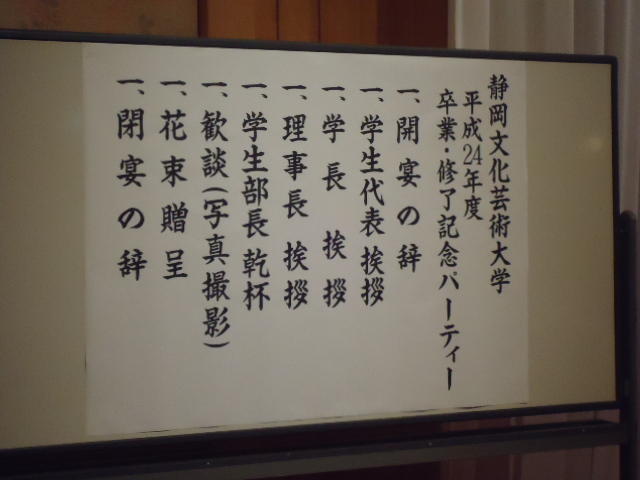 静岡文化芸術大学
平成24年度
卒業・修了記念パーティー
一、開宴の辞
一、学生代表挨拶
一、学長挨拶
一、理事長挨拶
一、学生部長乾杯
一、歓談(写真撮影)
一、花束贈呈
一、閉宴の辞